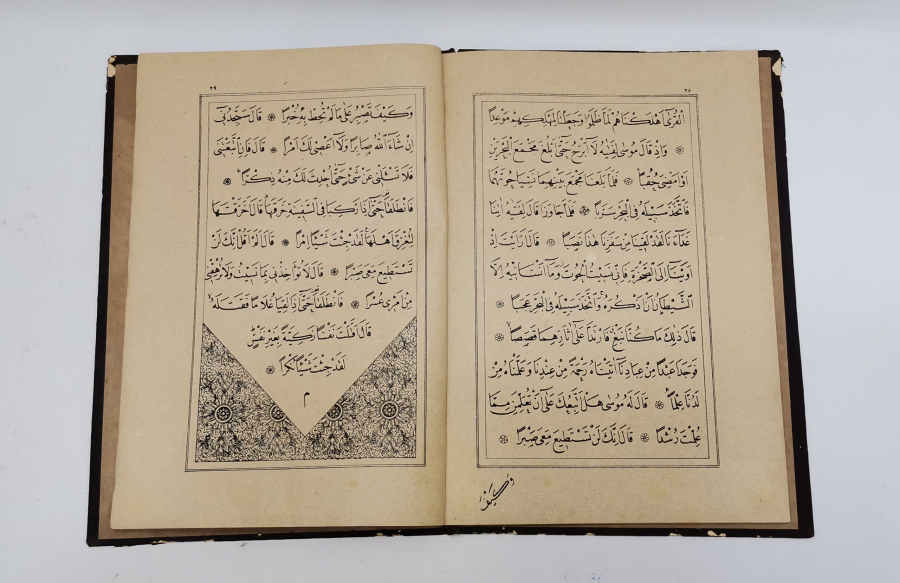 ٢٨
الْقُرٰٓى اَهْلَكْنَاهُمْ لَمَّا ظَلَمُوا وَجَعَلْنَا لِمَهْلِكِهِمْ مَوْعِدًا
وَاِذْ قَالَ مُوسٰى لِفَتٰيهُ لَٓا اَبْرَحُ حَتّٰٓى اَبْلُغَ مَجْمَعَ الْبَحْرَيْنِ
اَوْ اَمْضِىَ حُقُبًا فَلَمَّا بَلَغَا مَجْمَعَ بَيْنِهِمَا نَسِيَا حُوتَهُمَا
فَاتَّخَذَ سَبِيلَهُ فِى الْبَحْرِ سَرَبًا فَلَمَّا جَاوَزَا قَالَ لِفَتٰيهُ اٰتِنَا
غَدَٓاءَنَا لَقَدْ لَقِينَا مِنْ سَفَرِنَا هٰذَا نَصَبًا قَالَ اَرَاَيْتَ اِذْ
اَوَيْنَٓا اِلَى الصَّخْرَةِ فَاِنِّى نَسِيتُ الْحُوتَ وَمَٓا اَنْسَانِيهُ اِلَّا
الشَّيْطَانُ اَنْ اَذْكُرَهُ وَاتَّخَذَ سَبِيلَهُ فِى الْبَحْرِ عَجَبًا
قَالَ ذٰلِكَ مَا كُنَّا نَبْغِ فَارْتَدَّا عَلٰٓى اٰثَارِهِمَا قَصَصًا
فَوَجَدَا عَبْدًا مِنْ عِبَادِنَٓا اٰتَيْنَاهُ رَحْمَةً مِنْ عِنْدِنَا وَعَلَّمْنَاهُ مِنْ
لَدُنَّا عِلْمًا قَالَ لَهُ مُوسٰى هَلْ اَتَّبِعُكَ عَلٰٓى اَنْ تُعَلِّمَنِ مِمَّا
عُلِّمْتَ رُشْدًا قَالَ اِنَّكَ لَنْ تَسْتَطِيعَ مَعِىَ صَبْرًا
وَكَيْفَ
٢٩
وَكَيْفَ تَصْبِرُ عَلٰى مَا لَمْ تُحِطْ بِهِ خُبْرًا قَالَ سَتَجِدُنِٓى
اِنْ شَٓاءَ اللّٰهُ صَابِرًا وَلَٓا اَعْصِى لَكَ اَمْرًا قَالَ فَاِنِ اتَّبَعْتَنِى
فَلَا تَسْـَٔلْنِى عَنْ شَىْءٍ حَتّٰٓى اُحْدِثَ لَكَ مِنْهُ ذِكْرًا
فَانْطَلَقَا حَتّٰٓى اِذَا رَكِبَا فِى السَّفِينَةِ خَرَقَهَا قَالَ اَخَرَقْتَهَا
لِتُغْرِقَ اَهْلَهَا لَقَدْ جِئْتَ شَيْئًا اِمْرًا قَالَ اَلَمْ اَقُلْ اِنَّكَ لَنْ
تَسْتَطِيعَ مَعِىَ صَبْرًا قَالَ لَا تُؤَاخِذْنِى بِمَا نَسِيتُ وَلَا تُرْهِقْنِى
مِنْ اَمْرِى عُسْرًا فَانْطَلَقَا حَتّٰٓى اِذَا لَقِيَا غُلَامًا فَقَتَلَهُ
قَالَ اَقَتَلْتَ نَفْسًا زَكِيَّةً بِغَيْرِ نَفْسٍ
لَقَدْ جِئْتَ شَيْئًا نُكْرًا
م